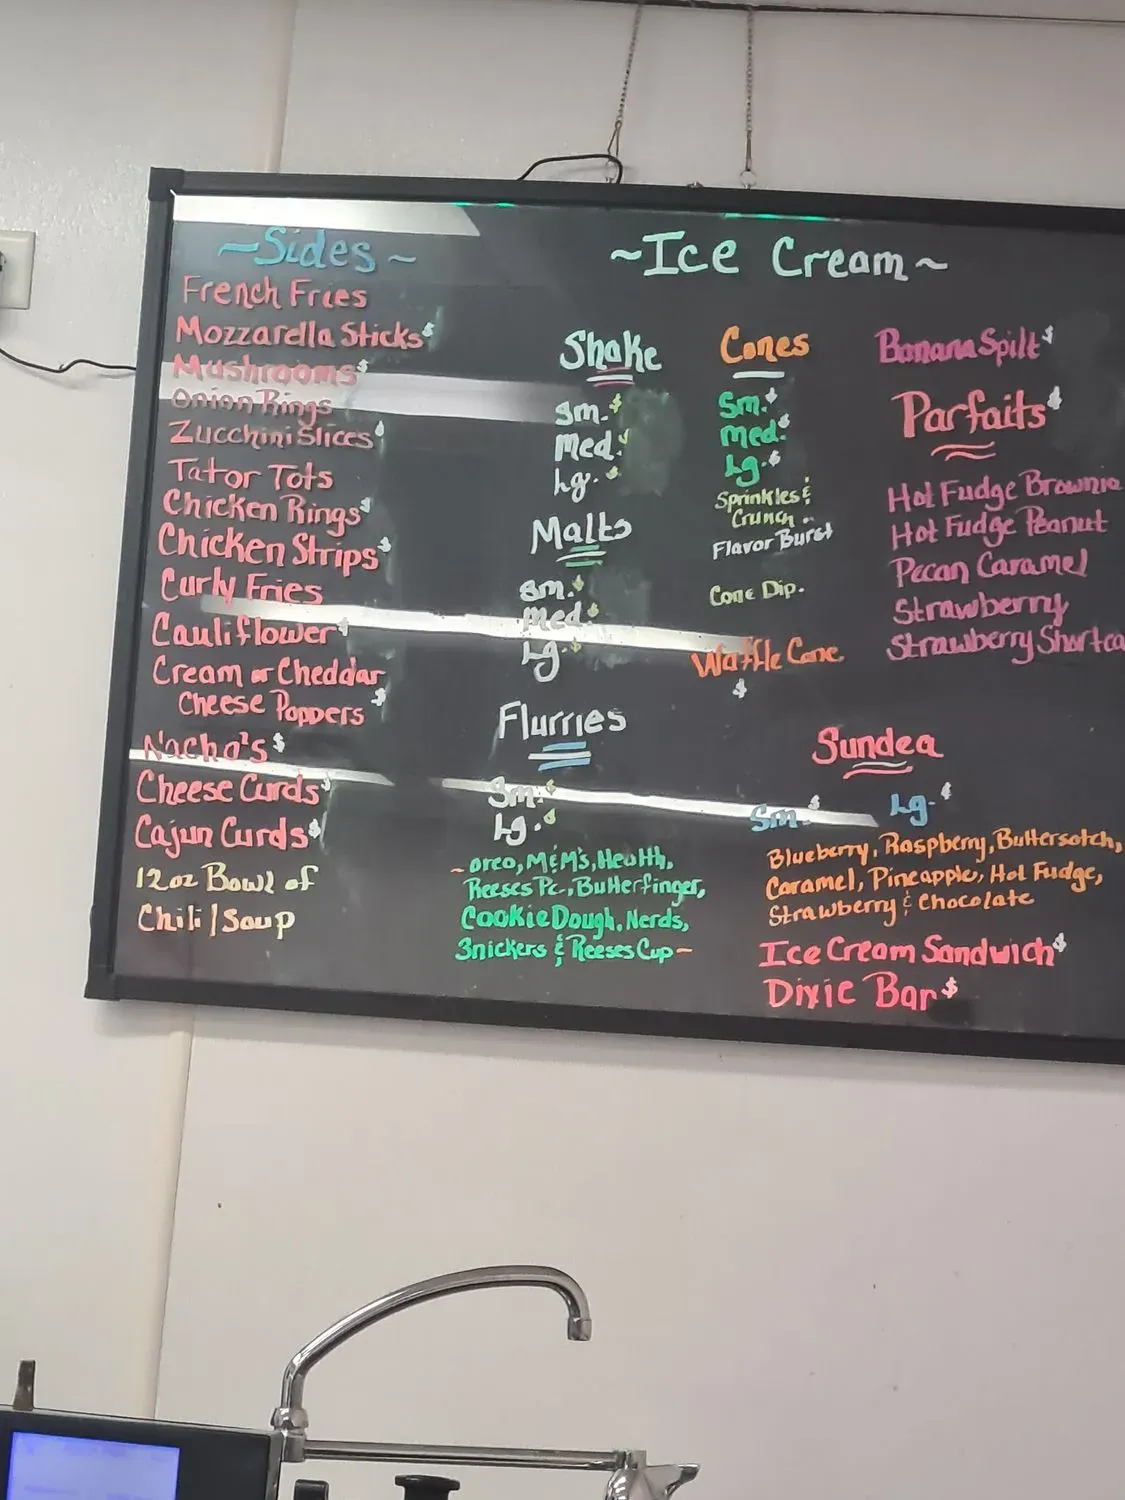 ~Sides~
French Fries
Mozzarella Sticks $
Mushrooms $
Onion Rings
Zucchini Slices $
Tator Tots
Chicken Rings $
Chicken Strips $
Curly Fries
Cauliflower $
Cream or Cheddar
Cheese Poppers $
Nacho's $
Cheese Curds $
Cajun Curds $
12oz Bowl of
Chili/Soup
~Ice Cream~
Shake
Sm. $
Med. $
Lg. $
Malts
Sm. $
Med. $
Lg. $
Flurries
Sm. $
Lg. $
~ Oreo, M&M's, Heath,
Reeses Pc., Butterfinger,
Cookie Dough, Nerds,
Snickers & Reeses Cup ~
Cones
Sm. $
Med. $
Lg. $
Sprinkles &
Crunch
Flavor Burst
Cone Dip.
Waffle Cone
$
Banana Spilt $
Parfaits $
Hot Fudge Brownie
Hot Fudge Peanut
Pecan Caramel
Strawberry
Strawberry Shortca
Sundea
Sm. $ Lg. $
Blueberry, Raspberry, Buttersotch,
Caramel, Pineapple, Hot Fudge,
Strawberry & Chocolate
Ice Cream Sandwich $
Dixie Bar $